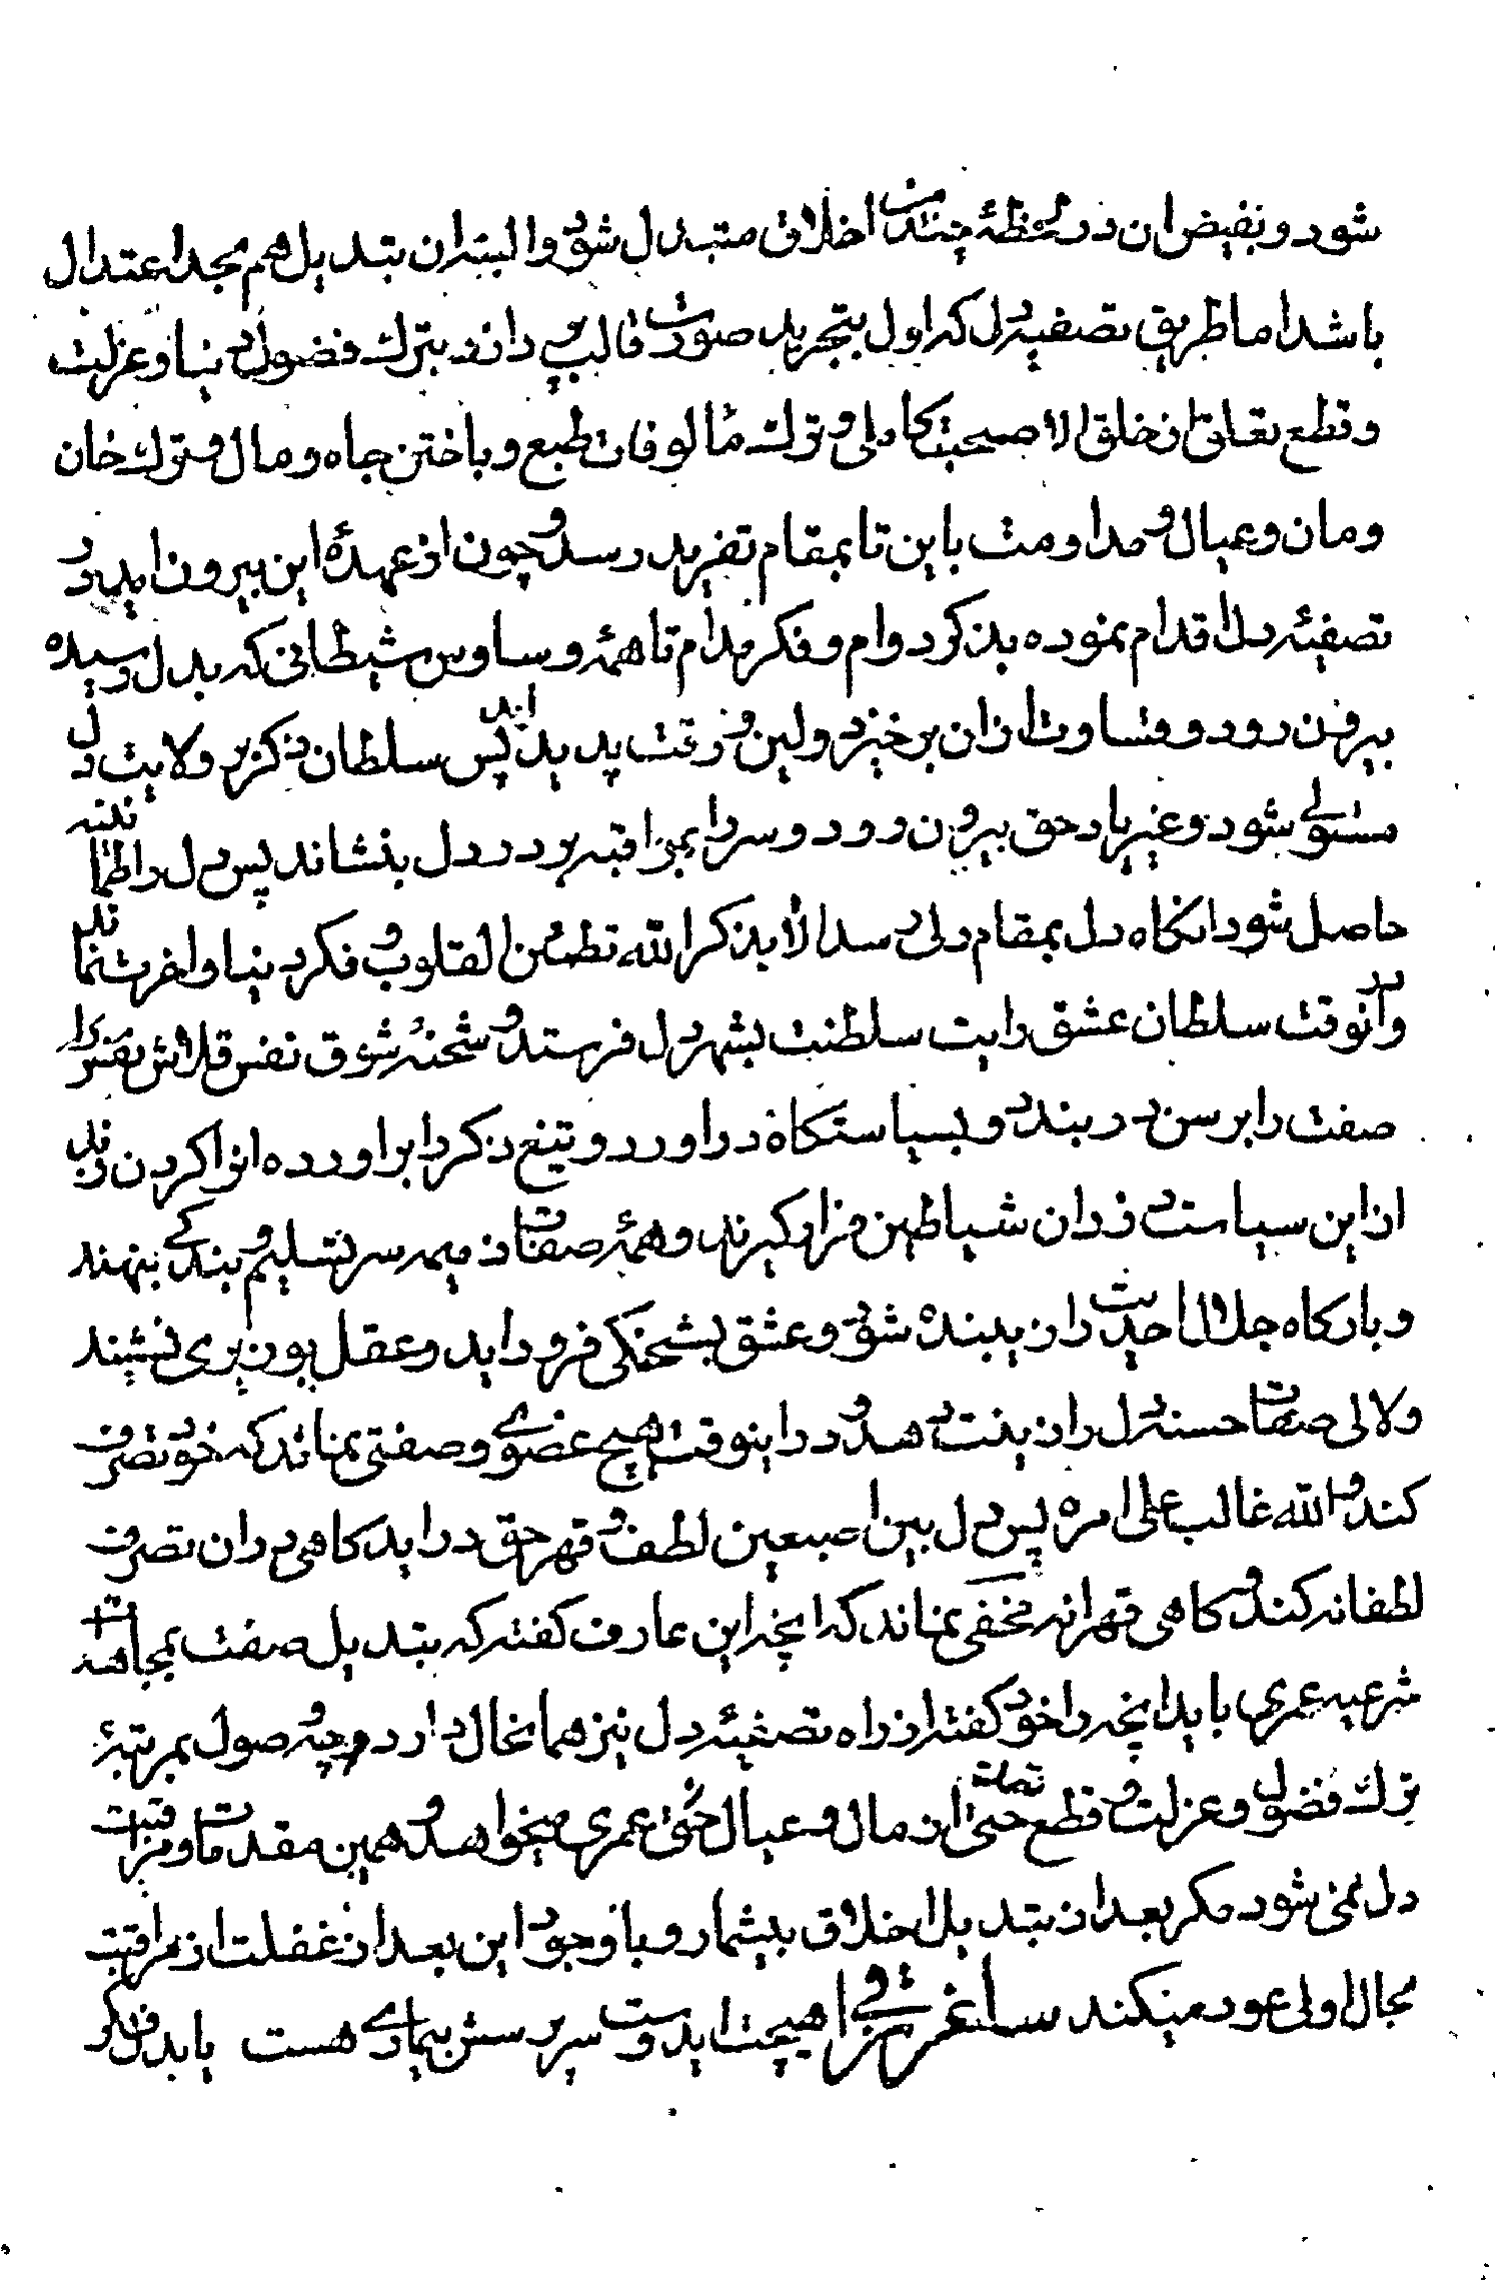 شود و بفیض ان در لحظهٔ چندین اخلاق متبدل شود و البته ان تبدیل هم بحد اعتدال
باشد اما طریق تصفیه دل که اول بتجرید صورت قالب پردازد بترک فضول دنیا و عزلت
و قطع تعلق از خلق الا صحبت کاملی و ترک مالوفات طبع و باختن جاه و مال و ترک خان
و مان و عیال و مداومت باین تا بمقام تفرید رسد و چون از عهدهٔ این بیرون اید در
تصفیهٔ دل اقدام نموده بذکر دوام و فکر مدام تا همهٔ وساوس شیطانی که بدل رسیده
بیرون رود و قساوت ازان برخیزد و لین و رقت پدید اید پس سلطان ذکر بر ولایت دل
مستولی شود و غیر یاد حق بیرون رود و سر را بمراقبه بر در دل بنشاند پس دل را طمانینه
حاصل شود انکاه دل بمقام دلی رسد الا بذکر الله تطمئن القلوب و فکر دنیا و اخرت نماند
و انوقت سلطان عشق رایت سلطنت بشهر دل فرستد و شحنهٔ شوق نفس قلاش
صفت را برسن درد بندد و بسیاستکاه در اورد و تیغ ذکر را براورده انرا کردن زند
از این سیاست دزدان شیاطین فرار گیرند و همهٔ صفات ذمیمه سر تسلیم و بندکی بنهند
و بارکاه جلال احدیت را زیبنده شود و عشق بشحنکی فرود اید و عقل بوزیری نشیند
و لالی صفات حسنه دل را زینت دهد و در اینوقت هیچ عضوی و صفتی نماند که خود تصرف
کند و الله غالب علی امره پس دل بین اصبعین لطف و قهر حق دراید کاهی دران تصرف
لطفانه کند و کاهی قهرانه مخفی نماند که انچه این عارف کفته که تبدیل صفت بمجاهدات
شرعیه عمری باید انچه را خود کفته از راه تصفیهٔ دل نیز همانحال دارد و چه وصول بمرتبهٔ
ترک فضول و عزلت و قطع تعلقات حتی از مال و عیال خود عمری میخواهد و همین مقدمات و مراقبت
دل نمی شود مکر بعد از تبدیل اخلاق بیشمار و با وجود این بعد از غفلت از مراقبت
بحال اولی عود میکند ساغر شرفی را هیچت ایدوست سر پرسش بیماری هست باید